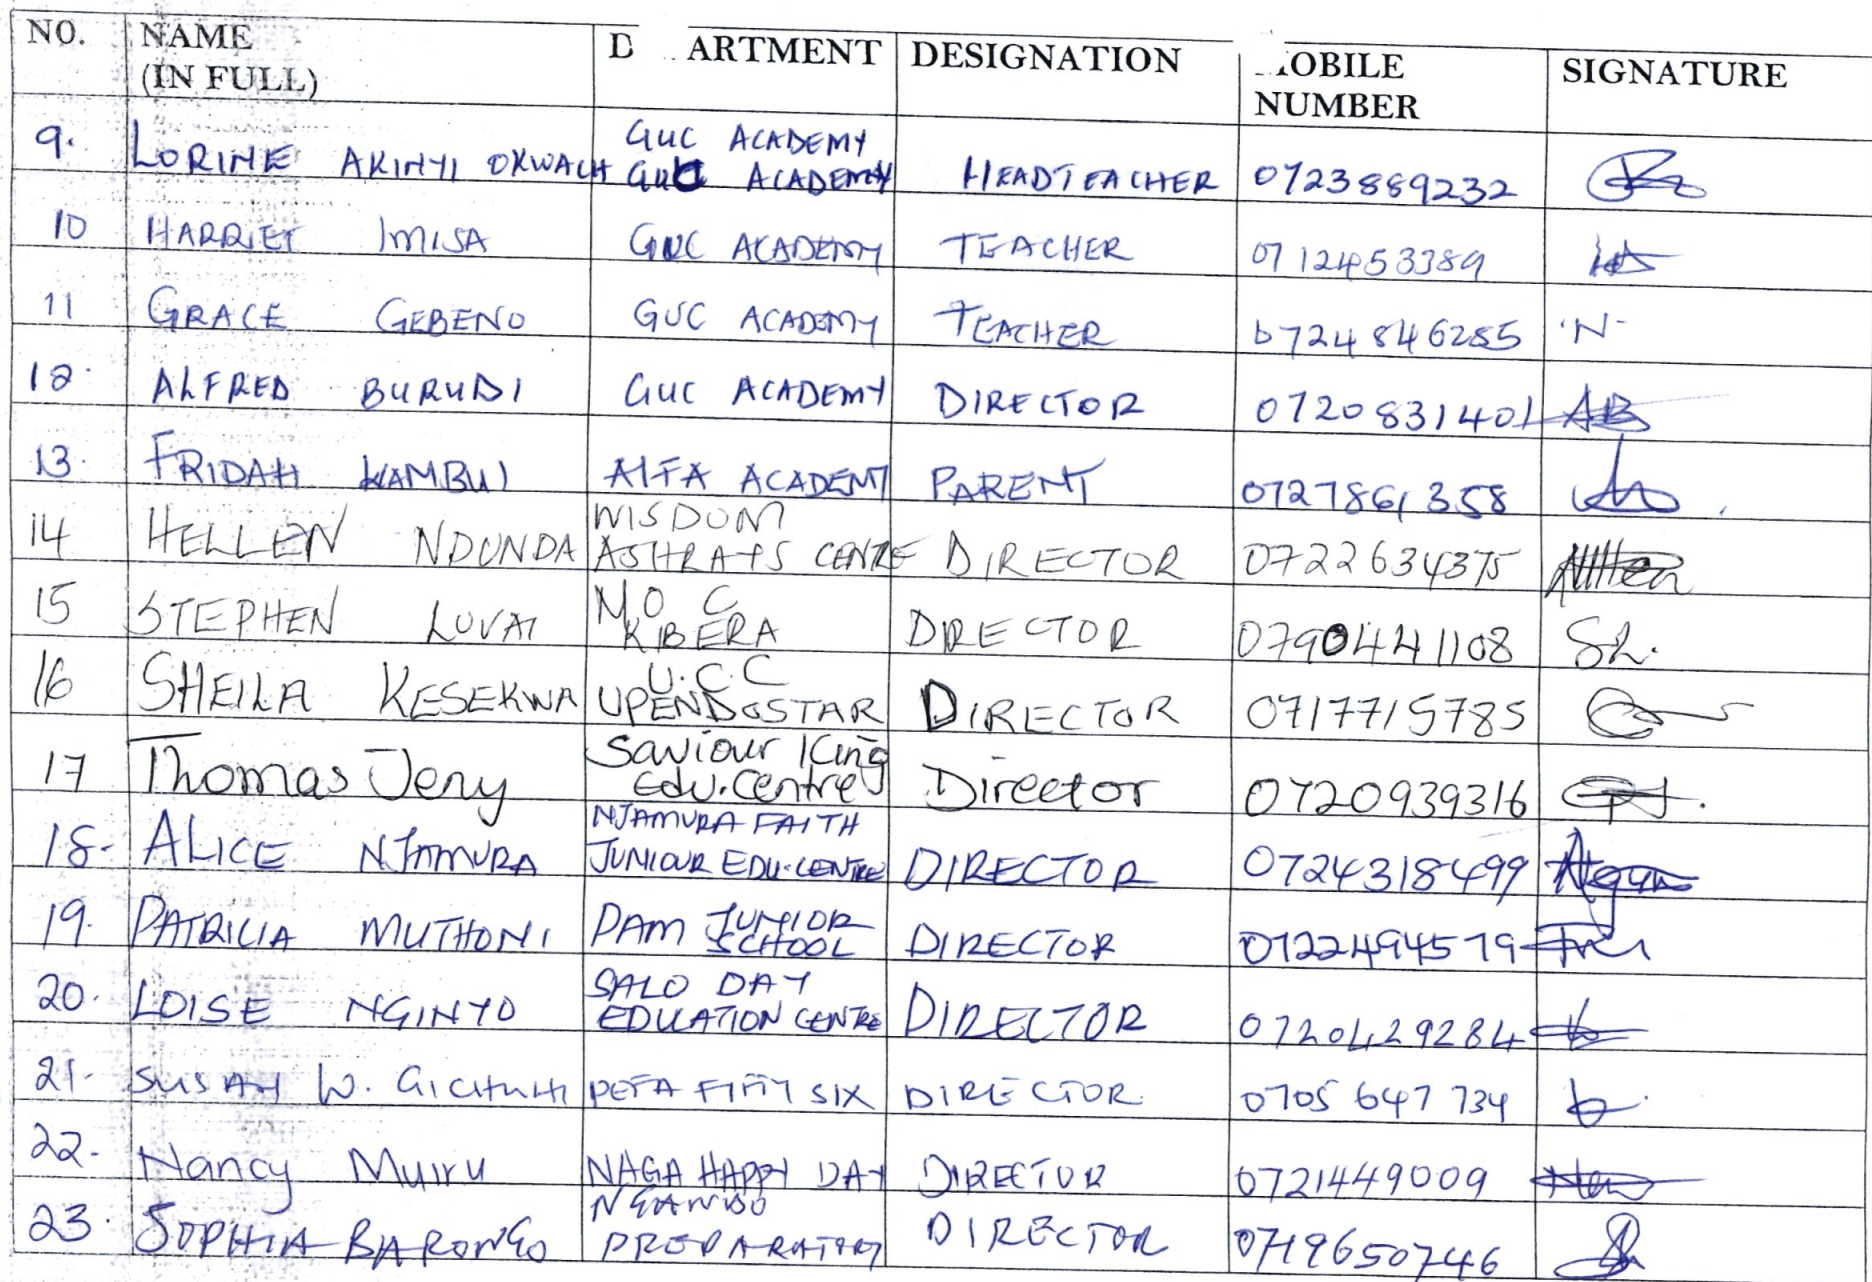 NO. NAME D ARTMENT DESIGNATION OBILE SIGNATURE
(IN FULL) NUMBER
GUC ACADEMY
9. LORINE AKINYI OKWACH GUC ACADEMY HEADTEACHER 0723889232
10 HARRIET IMISA GUC ACADEMY TEACHER 0712453389
11 GRACE GEBENO GUC ACADEMY TEACHER 0724846285 N
12 ALFRED BURUDI GUC ACADEMY DIRECTOR 0720831401 AB
13. FRIDAH WAMBUI ALFA ACADEMY PARENT 0727861358
WISDOM
14 HELLEN NDUNDA CENTRE DIRECTOR 0722634375
M.O.C
15 STEPHEN LUVAI KIBERA DIRECTOR 0790441108 SL.
U.C.C
16 SHEILA KESEKWA UPENDOSTAR DIRECTOR 0717715785
Saviour King
17 Thomas Jeny Edu.Centre Director 0720939316
NJAMURA FAITH
18. ALICE NJAMURA JUNIOUR EDU.CENTRE DIRECTOR 0724318499
19. PATRICIA MUTHONI PAM JUNIOR DIRECTOR 0722494579
SCHOOL
SALO DAY
20. LOISE NGINYO EDUCATION CENTRE DIRECTOR 0720429284
21. SUSAN W. GICHUHI PEFA FIFTY SIX DIRECTOR 0705 647 734
22. Nancy Muiru NAGA HAPPY DAY DIRECTOR 0721449009
23. SOPHIA BARONGO PREPARATORY DIRECTOR 0719650746